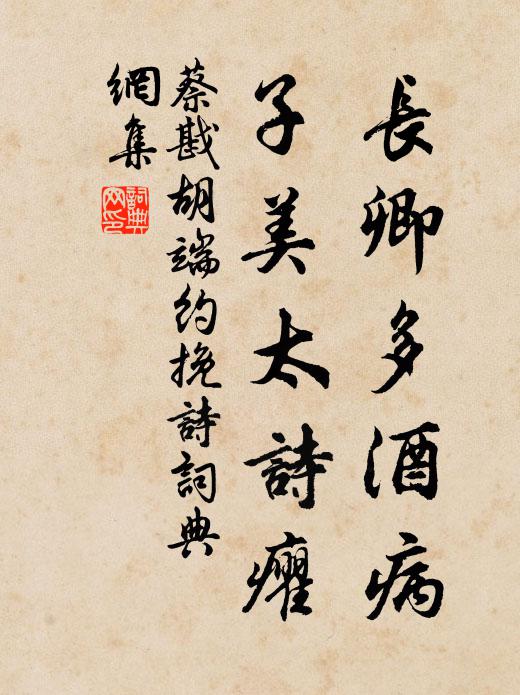 長卿多酒病
子美太詩癯
蔡戡胡端約挽詩詞典
網集
詞典網印